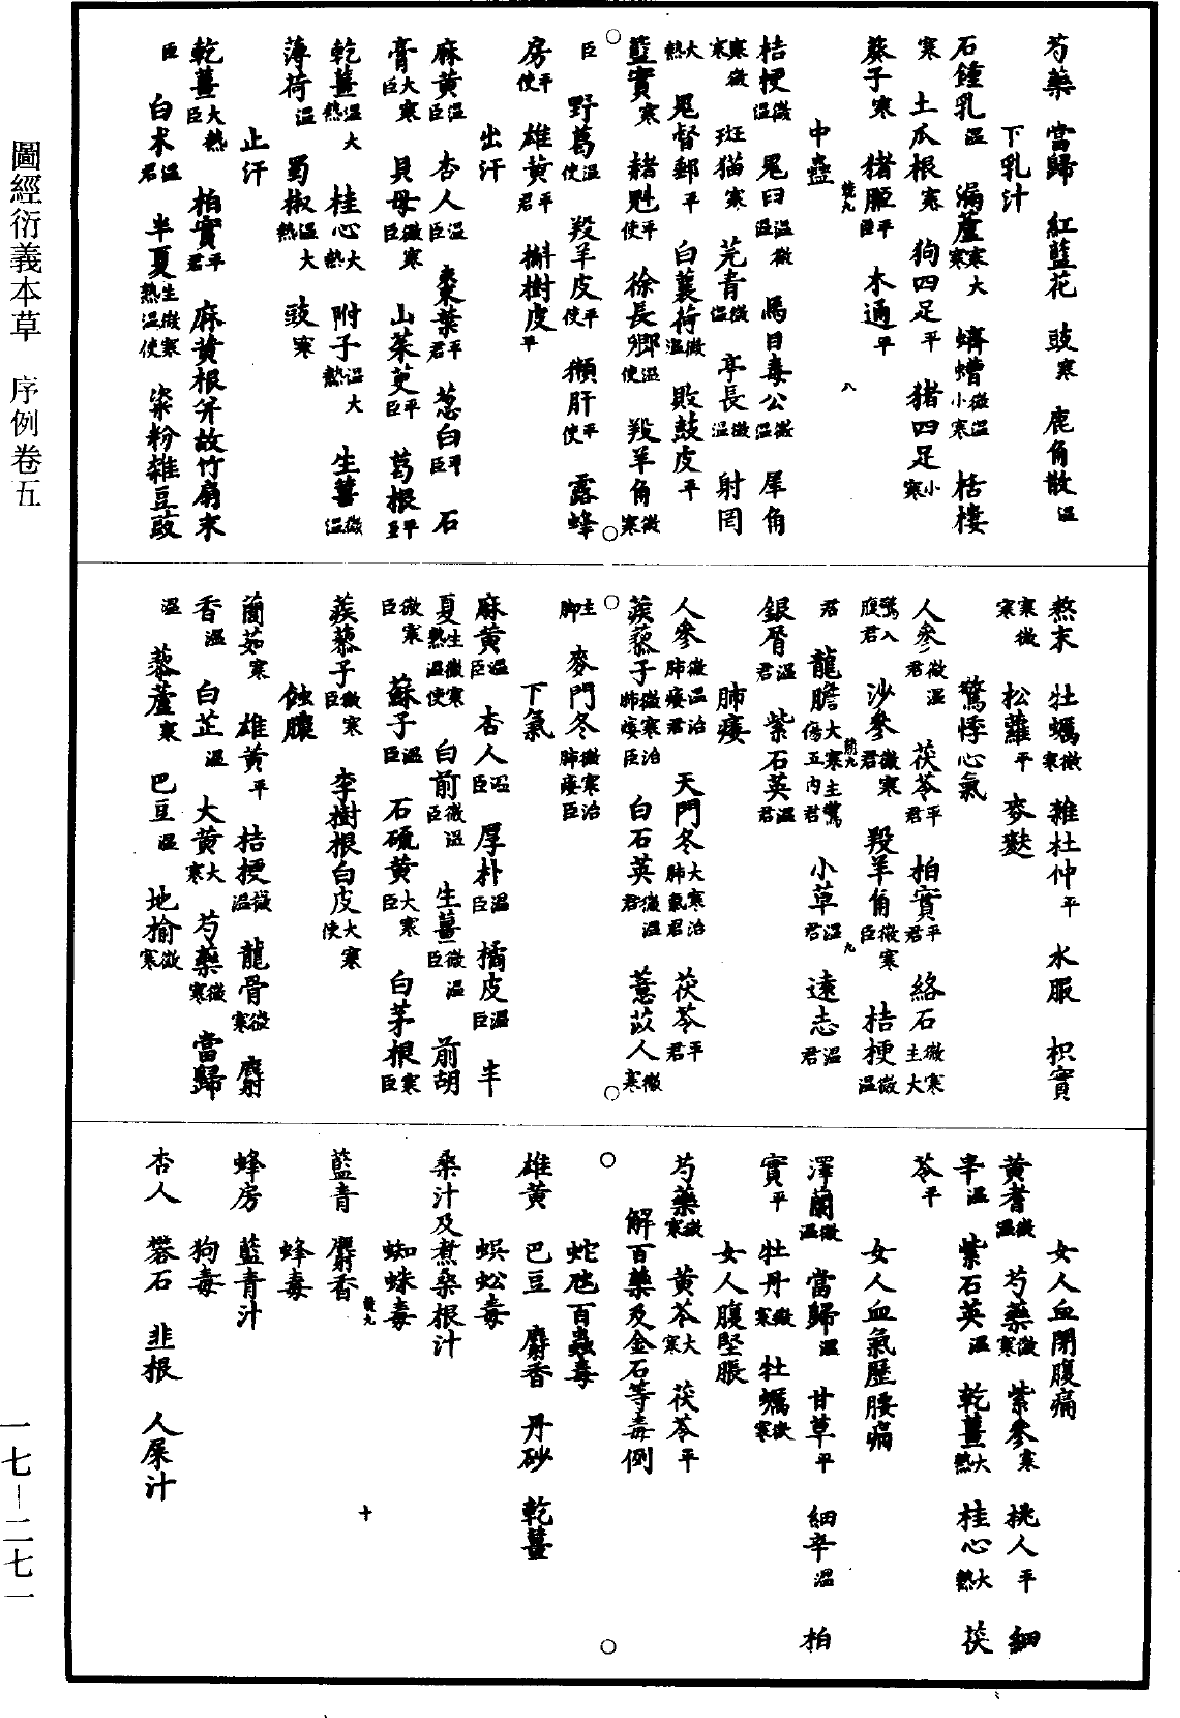 芍藥 當歸 紅藍花 豉寒 鹿角散温
下乳汁
石鍾乳温 漏蘆寒大寒 蠐螬微温小寒 栝樓
寒 土瓜根寒 狗四足平 猪四足小寒
葵子寒 猪胆平臣 木通平
中蠱
桔梗微温 鬼臼温微温 馬目毒公微温 犀角
寒微寒 斑猫寒 芫青微温 亭長微温 射罔
大熱 鬼督郵平 白蘘荷微温 敗鼓皮平
藍實寒 赭魁平使 徐長卿温使 羖羊角微寒
臣 野葛温使 羖羊皮平使 獺肝平使 露蜂
房平使 雄黄平君 槲樹皮平
出汗
麻黄温臣 杏人温臣 棗葉平君 葱白平臣 石
膏大寒臣 貝母微寒臣 山茱萸平臣 葛根平臣
乾薑温大熱 桂心大熱 附子温大熱 生薑微温
薄荷温 蜀椒温大熱 豉寒
止汗
乾薑大熱臣 柏實平君 麻黄根并故竹扇末
臣 白术温君 半夏生微寒熟温使 粢粉雜豆豉
熬末 牡蠣微寒 雜杜仲平 水服 枳實
寒微寒 松蘿平 麥麩
驚悸心氣
人參微温君 茯苓平君 柏實平君 絡石微寒主大
驚入腹君 沙參微寒君 羖羊角微寒臣 桔梗微温
君 龍膽大寒主驚傷五内君 小草温君 遠志温君
銀屑温君 紫石英温君
肺痿
人參微温治肺痿君 天門冬大寒治肺氣君 茯苓平君
蒺藜子微寒治肺痿臣 白石英微温君 薏苡人微寒
主脚 麥門冬微寒治肺痿臣
下氣
麻黄温臣 杏人温臣 厚朴温臣 橘皮温臣 半
夏生微寒熟温使 白前微温臣 生薑微温臣 前胡
微寒臣 蘇子温臣 石硫黄大寒臣 白茅根寒臣
蒺藜子微寒臣 李樹根白皮大寒使
蝕膿
䕡茹寒 雄黄平 桔梗微温 龍骨微寒 麝
香温 白芷温 大黄大寒 芍藥微寒 當歸
温 藜蘆寒 巴豆温 地榆微寒
女人血閉腹痛
黄耆微温 芍藥微寒 紫參寒 桃人平 細
辛温 紫石英温 乾薑大熱 桂心大熱 茯
苓平
女人血氣歷腰痛
澤蘭微温 當歸温 甘草平 細辛温 柏
實平 牡丹微寒 牡蠣微寒
女人腹堅脹
芍藥微寒 黄芩大寒 茯苓平
解百藥及金石等毒例
蛇虺百蟲毒
雄黄 巴豆 麝香 丹砂 乾薑
蜈蚣毒
桑汁及煮桑根汁
蜘蛛毒
藍青 麝香
蜂毒
蜂房 藍青汁
狗毒
杏人 礬石 韭根 人屎汁
八
九
十
圖經衍義本草 序例卷五
一七—二七一